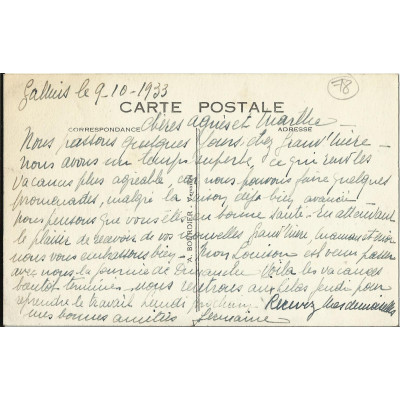 Galluis le 9-10-1933
78
CARTE POSTALE
CORRESPONDANCE
ADRESSE
Chères Agnès et Marthe -
Nous passons quelques jours chez Grand'Mère -
nous avons un temps superbe, ce qui rend les
vacances plus agréables et nous pouvons faire quelques
promenades, malgré la saison déjà bien avancée -
nous pensons que vous êtes en bonne santé. En attendant
le plaisir de recevoir de vos nouvelles Grand'Mère, maman et moi
nous vous embrassons bien - Louison est venu passer
avec nous la journée de Dimanche Voilà les vacances
bientôt terminées - nous rentrons jeudi pour
reprendre le travail Lundi prochain. Recevez Mesdemoiselles
mes bonnes amitiés Germaine
A. BOURDIER